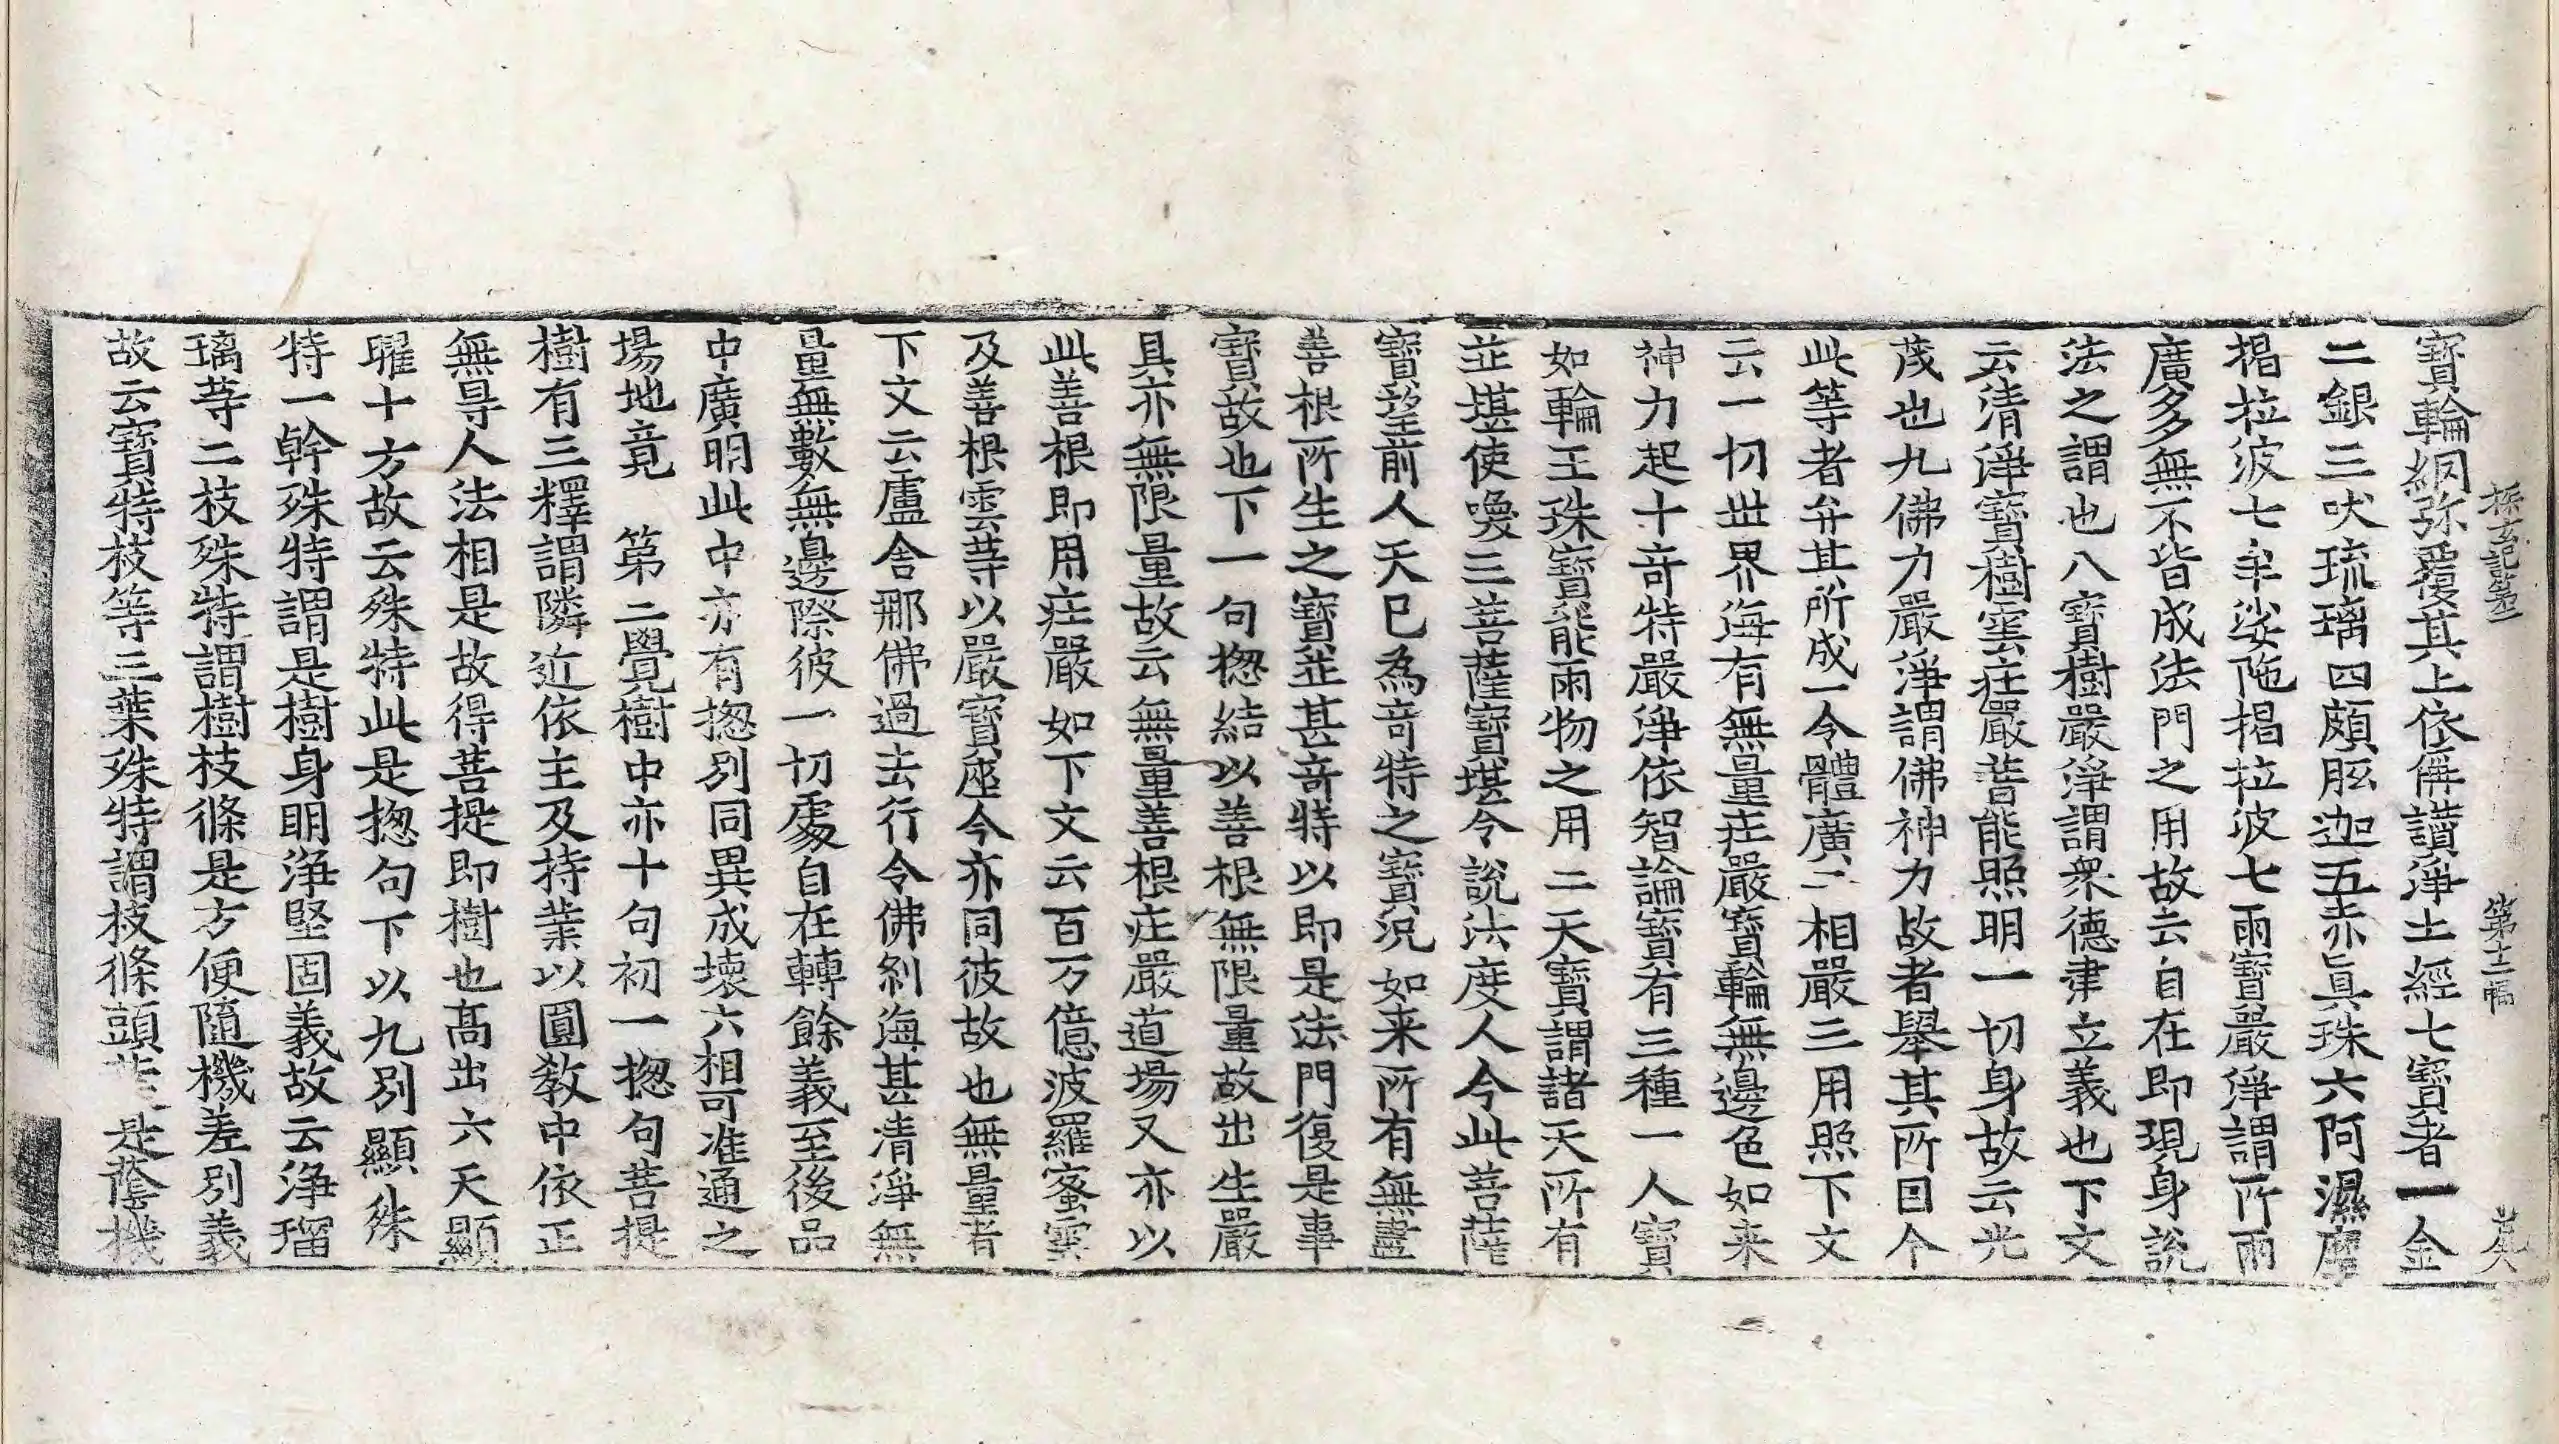 探玄記第二 第十二幅 英
寶輪網弥覆其上依稱讃淨土經七寶者一金
二銀三吠琉璃四頗胝迦五赤真珠六阿濕摩
揭拉波七牟娑陁揭拉波七雨寶嚴淨謂所雨
廣多無不皆成法門之用故云自在即現身說
法之謂也八寶樹嚴淨謂衆德聿立義也下文
云清淨寶樹雲庄嚴普能照明一切身故云光
茂也九佛力嚴淨謂佛神力故者舉其所因令
此等者弁其所成一令體廣二相嚴三用照下文
云一切世界海有無量庄嚴寶輪無邊色如来
神力起十竒特嚴淨依智論寶有三種一人寶
如輪王珠寶能雨物之用二天寶謂諸天所有
並堪使喚三菩薩寶堪令說法度人今此菩薩
寶望前人天已為竒特之寶况如来所有無盡
善根所生之寶並甚竒特以即是法門復是事
寶故也下一句揔結以善根無限量故出生嚴
具亦無限量故云無量善根庄嚴道場又亦以
此善根即用庄嚴如下文云百万億波羅蜜雲
及善根雲等以嚴寶座今亦同彼故也無量者
下文云盧舍那佛過去行令佛刹海甚清淨無
量無數無邊際彼一切處自在轉餘義至後品
中廣明此中亦有揔別同異成壞六相可准通之
場地竟 第二覺樹中亦十句初一揔句菩提
樹有三釋謂隣近依主及持業以圓教中依正
無㝵人法相是故得菩提即樹也髙出六天顯
曜十方故云殊特此是揔句下以九別顯殊
特一幹殊特謂是樹身明淨堅固義故云淨瑠
璃等二枝殊特謂樹枝條是方便隨機差別義
故云寶特枝等三葉殊特謂枝條頭 是蔭機